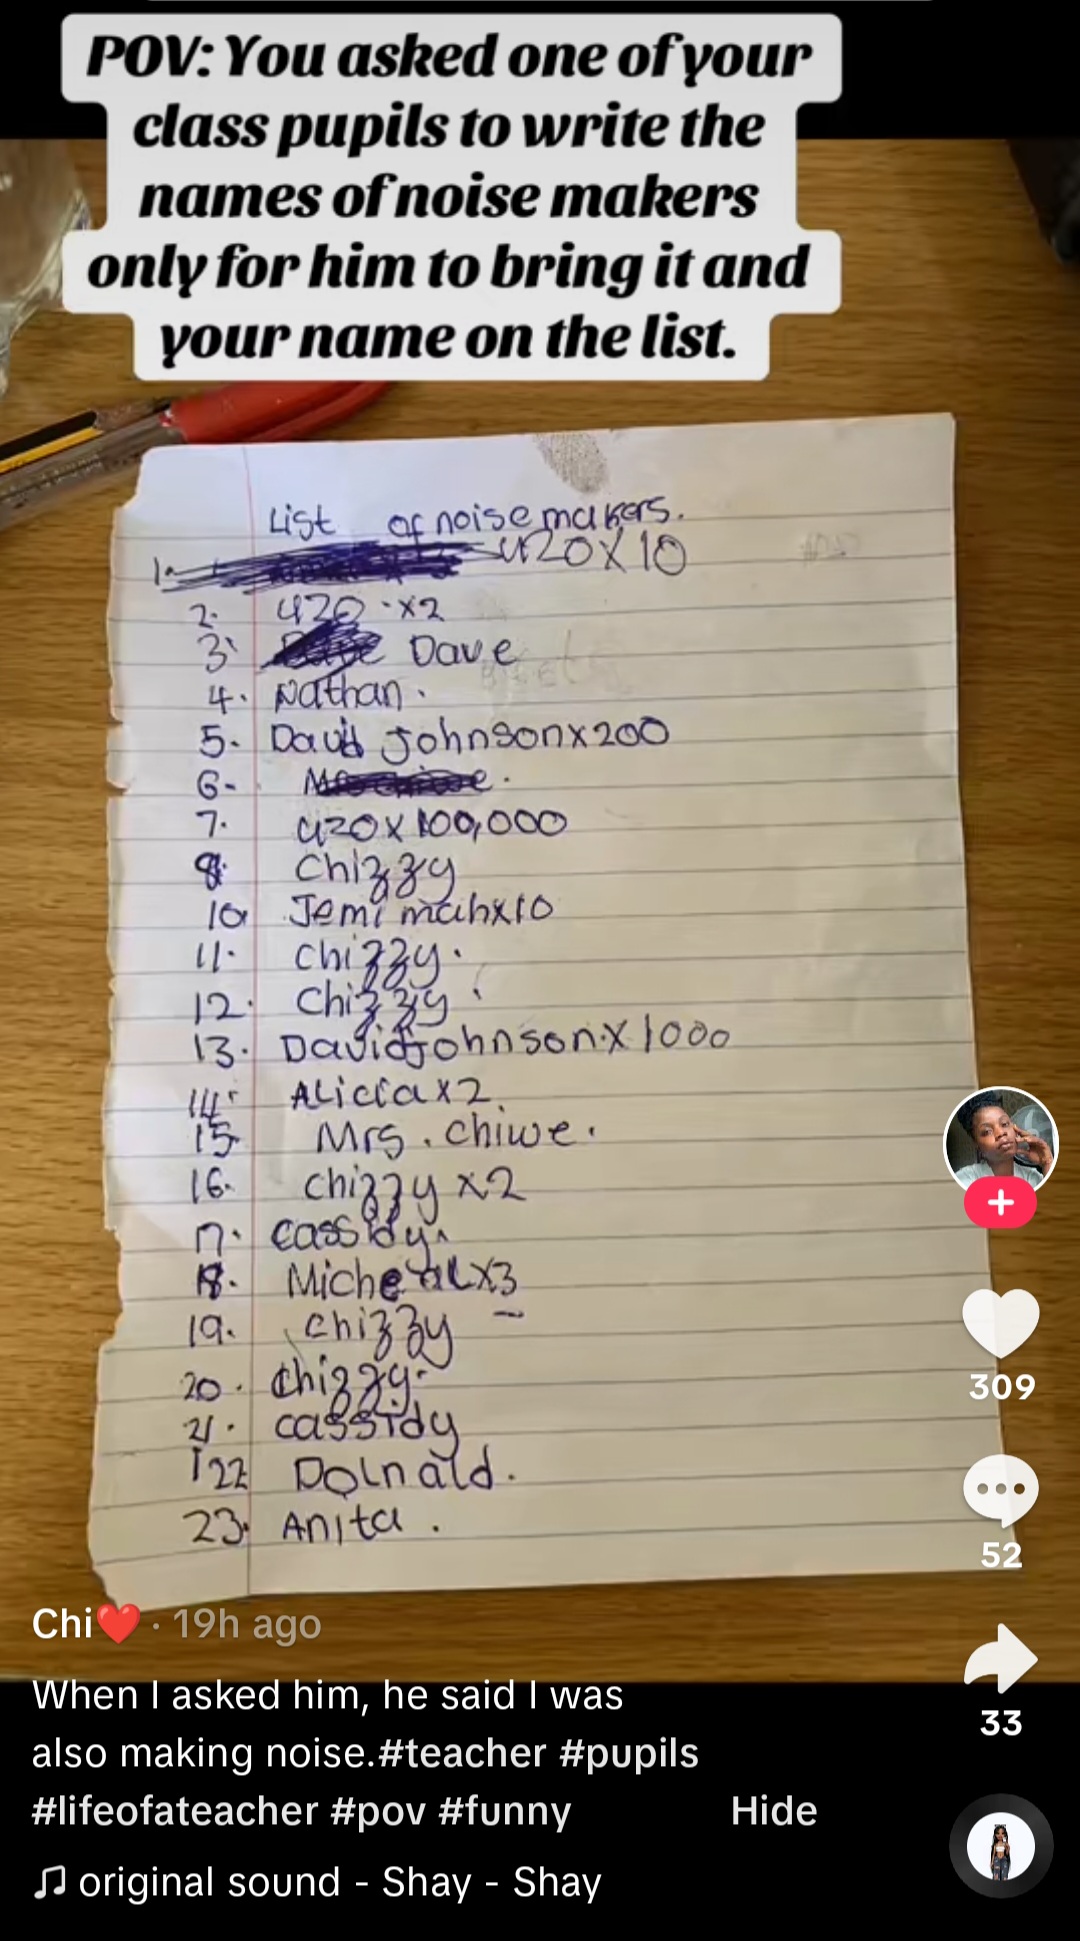 POV: You asked one of your
class pupils to write the
names of noise makers
only for him to bring it and
your name on the list.
List of noise makers.
1. 420 X 10
2. 420 . x2
3. Dave
4. Nathan.
5. David Johnson x 200
6.
7. 420 x 100,000
8. Chizzy
10. Jemimah x10
11. Chizzy.
12. Chizzy.
13. David Johnson. X 1000
14. Alicia x 2.
15. Mrs. Chiwe.
16. Chizzy x2
17. Cassidy.
18. Micheal x3
19. Chizzy
20. Chizzy.
21. Cassidy
22 Dolnald.
23. Anita.
Chi❤️ · 19h ago
When I asked him, he said I was
also making noise.#teacher #pupils
#lifeofateacher #pov #funny Hide
♫ original sound - Shay - Shay
309
52
33